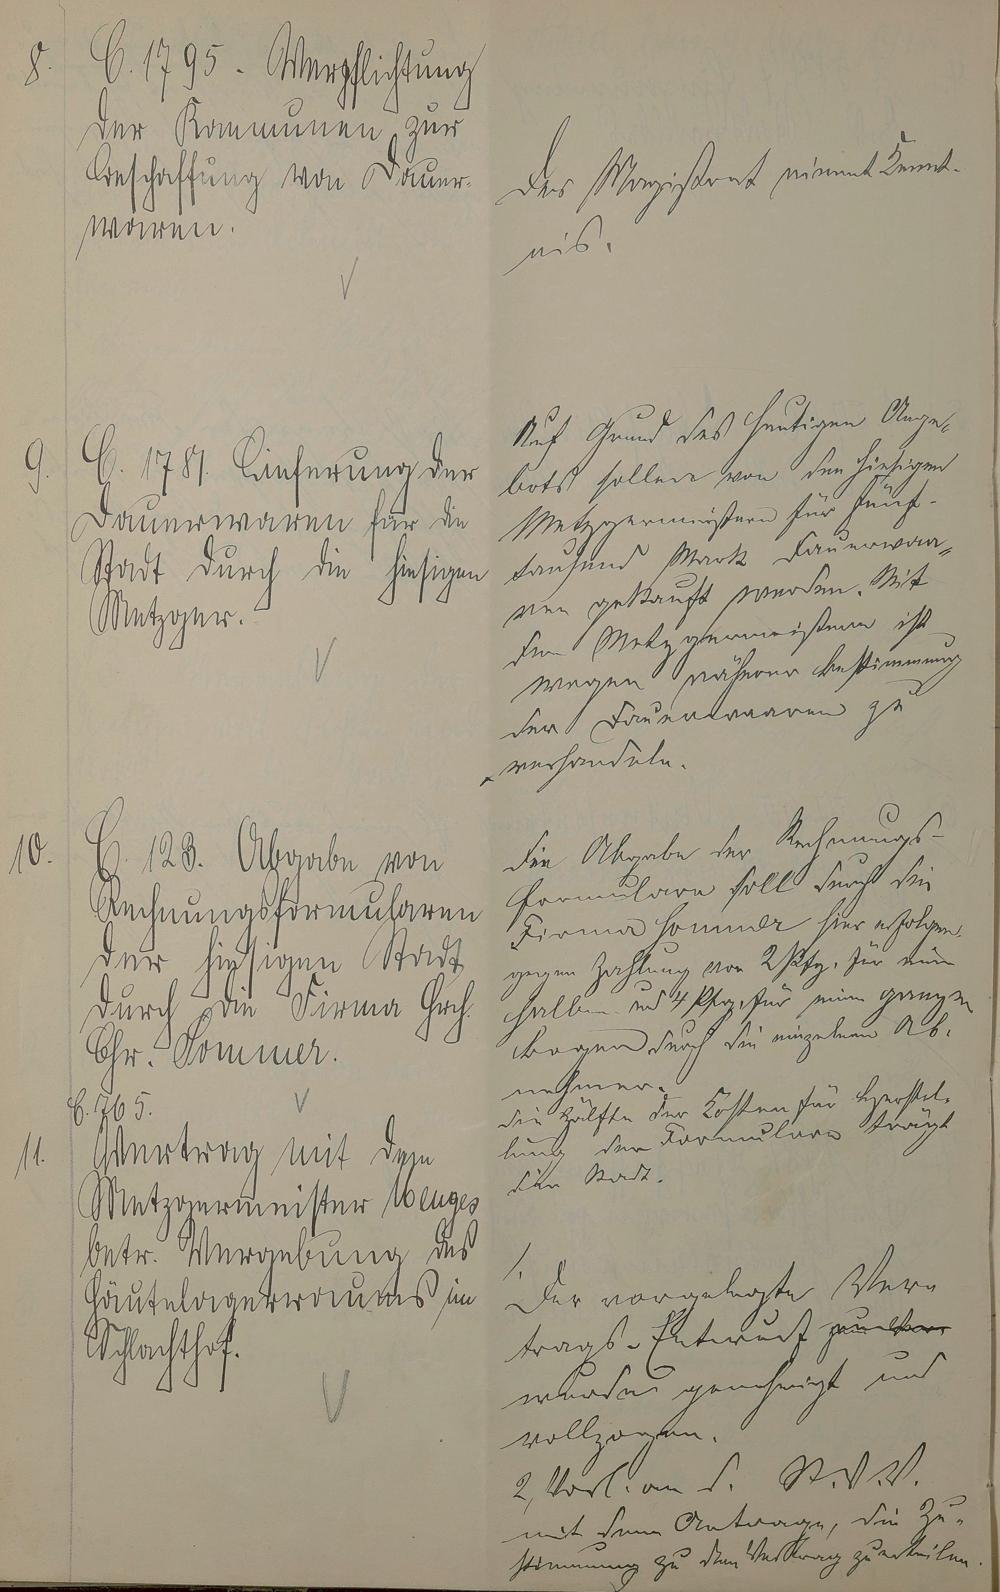 8. C. 1795. Verpflichtung
der Kommunen zur
Beschaffung von Dauer-
waren.
Der Magistrat nimmt Kennt-
nis.
9. C. 1781. Lieferung der
Dauerwaren für die
Stadt durch die hiesigen
Metzger.
Auf Grund des heutigen Ange-
bots sollen von den hiesigen
Metzgermeistern für fünf-
tausend Mark Dauerwaa-
ren gekauft werden. Mit
den Metzgermeistern ist
wegen näherer Bestimmung
der Dauerwaaren zu
verhandeln.
10. C. 123. Abgabe von
Rechnungsformularen
der hiesigen Stadt
durch die Firma Hrch.
Chr. Sommer.
Die Abgabe der Rechnungs-
formulare soll durch die
Firma Sommer hier erfolgen
gegen Zahlung von 2 Pfg. für einen
halben und 4 Pfg. für einen ganzen
Bogen durch die einzelnen Ab-
nehmer.
Die Hälfte der Kosten für Herstel-
lung der Formulare trägt
die Stadt.
C. 765.
11. Vertrag mit dem
Metzgermeister Menges
betr. Vergebung des
Häutelagerraums im
Schlachthof.
1.
Der vorgelegte Ver-
trags-Entwurf
wurde genehmigt und
vollzogen.
2, Vorl. an d. St.V.V.
mit dem Antrage, die Zu-
stimmung zu dem Vertrag zu erteilen.